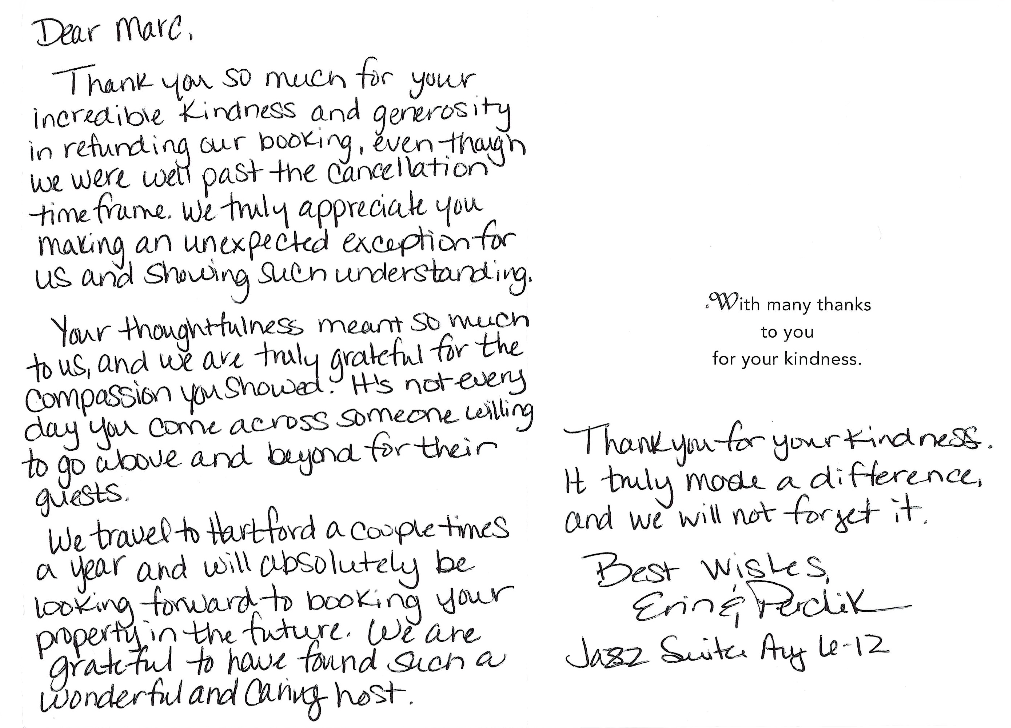 Dear Marc,
Thank you so much for your
incredible kindness and generosity
in refunding our booking, even though
we were well past the cancellation
time frame. We truly appreciate you
making an unexpected exception for
us and showing such understanding.
Your thoughtfulness meant so much
to us, and we are truly grateful for the
compassion you showed. It's not every
day you come across someone willing
to go above and beyond for their
guests.
We travel to Hartford a couple times
a year and will absolutely be
looking forward to booking your
property in the future. We are
grateful to have found such a
wonderful and caring host.
With many thanks
to you
for your kindness.
Thank you for your kindness.
It truly made a difference,
and we will not forget it.
Best Wishes,
Erin &
Jazz Suite Aug 6-12